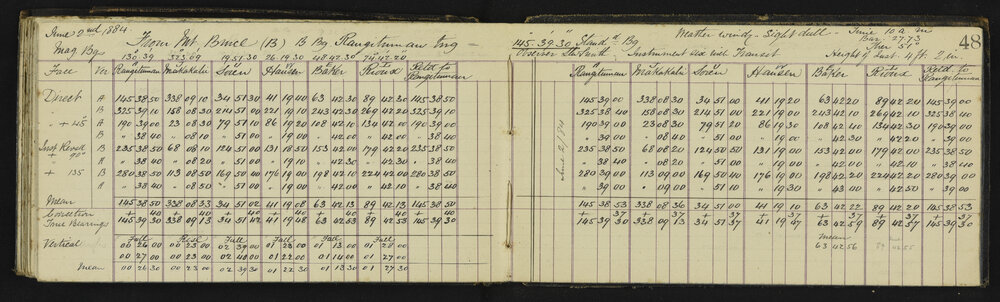 June 2nd 1884
From Mt. Bruce (B) B Bg Rangitumau Trig
Mag. Bgs. 130.39 323.09 19.51.30 26.19.30 48.42.30 74.42.20
Face Ver Rangitumau Makakahi Soren Hansen Baker Kiond Reltd to Rangitumau
Direct A 145 38 50 338 09 10 34 51 30 41 19 40 63 42 30 89 42 30 145 38 50
B 325 39 10 158 08 30 214 51 00 221 19 10 243 42 30 269 42 20 325 39 10
" + 45° A 190 39 00 23 08 30 79 51 10 86 19 20 108 42 10 134 42 00 190 39 00
B " 38 40 " 08 10 " 51 00 " 19 00 " 42 00 " 42 00 " 38 40
Inst Revsd + 90° B 235 38 50 68 08 10 124 51 00 131 18 50 153 42 00 179 42 20 235 38 50
A " 38 40 " 08 20 " 51 00 " 19 10 " 42 30 " 42 30 " 38 40
+ 135 B 280 38 50 113 08 50 169 50 40 176 19 00 198 42 10 224 42 00 280 38 50
A " 38 40 " 08 50 " 51 00 " 19 00 " 42 00 " 42 10 " 38 40
Mean 145 38 50 338 08 33 34 51 02 41 19 08 63 42 13 89 42 13 145 38 50
Correction + 40 + 40 + 40 + 40 + 40 + 40 + 40
True Bearings 145 39 30 338 09 13 34 51 42 41 19 48 63 42 53 89 42 53 145 39 30
Vertical Fall Rise Fall Fall Fall Fall
00 26 00 00 23 00 02 39 00 01 23 00 01 13 00 01 28 00
00 27 00 00 23 00 02 40 00 01 22 00 01 14 00 01 27 00
Mean 00 26 30 00 23 00 02 39 30 01 22 30 01 13 30 01 27 30
48
145°.39'.30" Stand'd Bg Weather windy - Light dull - Time 10 a m
Bar 27.73
Ther 51°
Observer Instrument used with Transit Height of Inst. 4 ft. 2 in.
Rangitumau Makakahi Soren Hansen Baker Kiond Reltd to Rangitumau
145 39 00 338 08 30 34 51 00 41 19 20 63 42 20 89 42 20 145 39 00
325 38 40 158 08 30 214 51 00 221 19 00 243 42 10 269 42 10 325 38 40
190 39 00 23 08 30 79 51 20 86 19 30 108 42 40 134 42 30 190 39 00
" 39 00 " 08 40 " 51 00 " 19 00 " 42 20 " 42 20 " 39 00
235 38 50 68 08 20 124 50 50 131 19 00 153 42 00 179 42 00 235 38 50
" 38 40 " 08 20 " 51 00 " 19 00 " 42 30 " 42 10 " 38 40
280 39 00 113 09 00 169 50 40 176 19 00 198 42 20 224 42 20 280 39 00
" 39 00 " 09 00 " 51 10 " 19 30 " 43 00 " 42 30 " 39 00
June 2/84
145 38 53 338 08 36 34 51 00 41 19 10 63 42 22 89 42 20 145 38 53
+ 37 + 37 + 37 + 37 + 37 + 37 + 37
145 39 30 338 09 13 34 51 37 41 19 47 63 42 59 89 42 57 145 39 30
mean
63 42 56 89 42 55